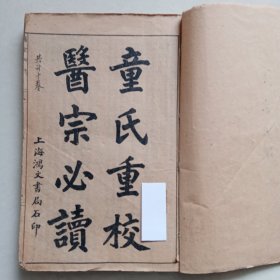 童氏重校
醫宗必讀
上海鴻文書局石印